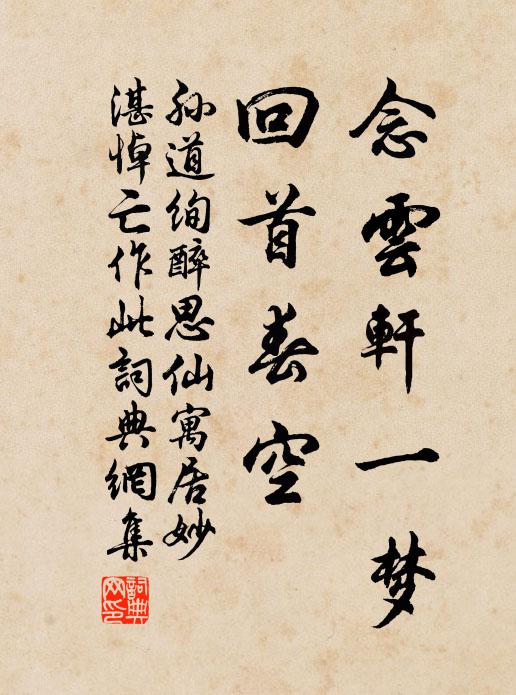 念雲軒一梦
回首春空
孙道绚醉思仙寓居妙
湛悼亡作此詞典網集
詞典网印